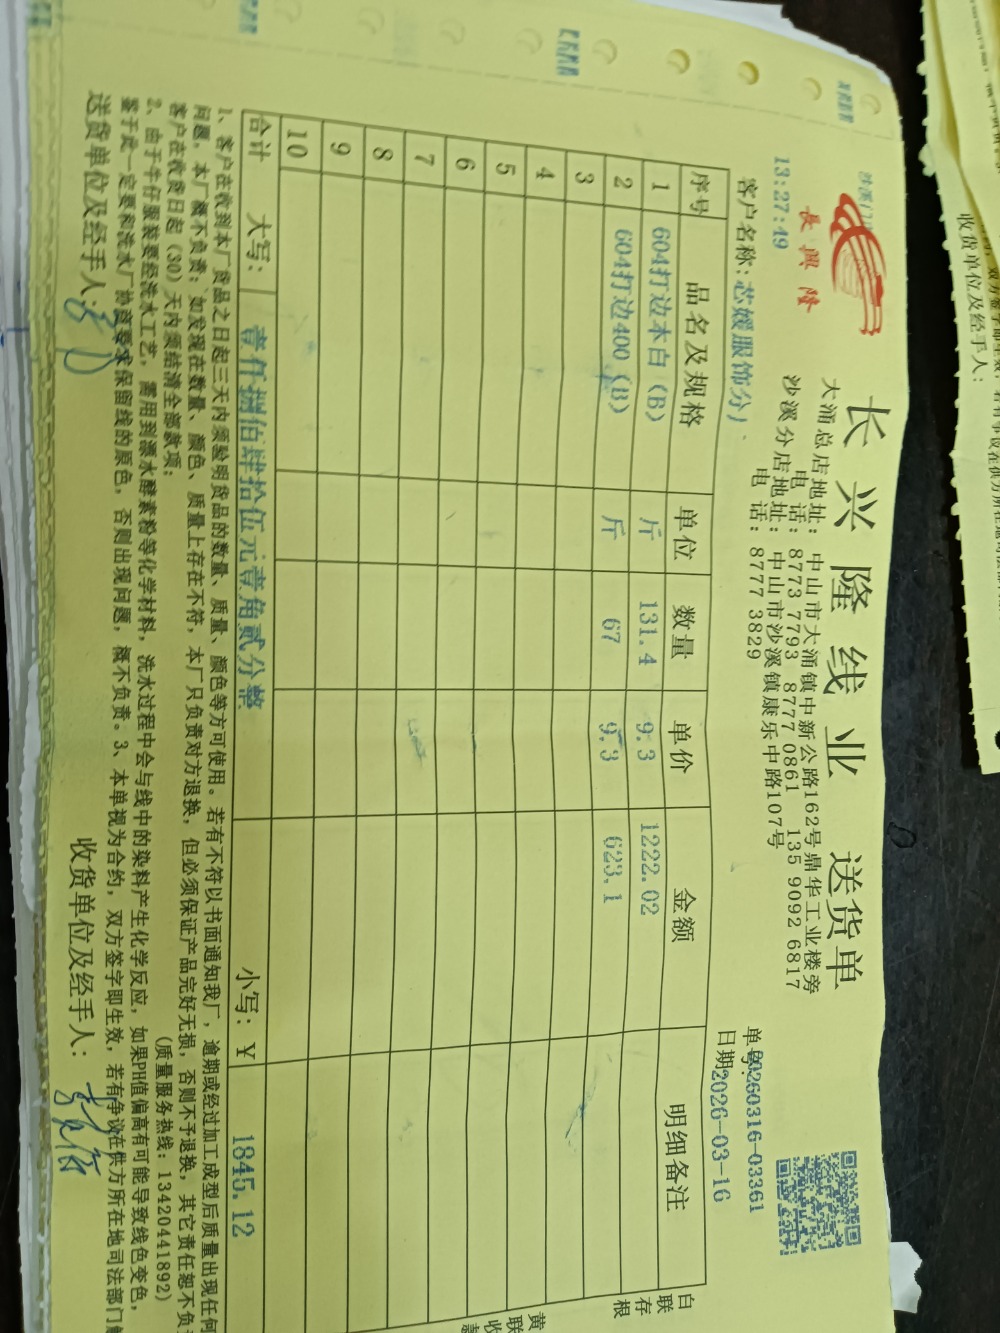 長興隆
长兴隆线业 送货单
大涌总店地址：中山市大涌镇中新公路162号鼎华工业楼旁
电 话：8773 7793 8777 0861 135 9092 6817
沙溪分店地址：中山市沙溪镇康乐中路107号
电 话：8777 3829
13:27:49
单号：20260316-03361
客户名称：芯媛服饰分)
日期2026-03-16
序号 品名及规格 单位 数量 单价 金额 明细备注
1 604打边本白（B） 斤 131.4 9.3 1222.02
2 604打边400（B） 斤 67 9.3 623.1
3
4
5
6
7
8
9
10
合计 大写： 壹仟捌佰肆拾伍元壹角贰分整 小写：￥ 1845.12
白联存根
黄联收
1、客户在收到本厂货品之日起三天内须验明货品的数量、质量、颜色等方可使用。若有不符以书面通知我厂，逾期或经过加工成型后质量出现任何
问题，本厂概不负责；如发现在数量、颜色、质量上存在不符，本厂只负责对方退换，但必须保证产品完好无损，否则不予退换，其它责任恕不负
客户在收货日起（30）天内须结清全部款项；
（质量服务热线：13420441892）
2、由于牛仔服装要经洗水工艺，需用到漂水酵素粉等化学材料，洗水过程中会与线中的染料产生化学反应，如果PH值偏高有可能导致线色变色，
鉴于此一定要和洗水厂协商要求保留线的原色，否则出现问题，概不负责。3、本单视为合约，双方签字即生效，若有争议在供方所在地司法部门
送货单位及经手人：
收货单位及经手人：
收货单位及经手人：